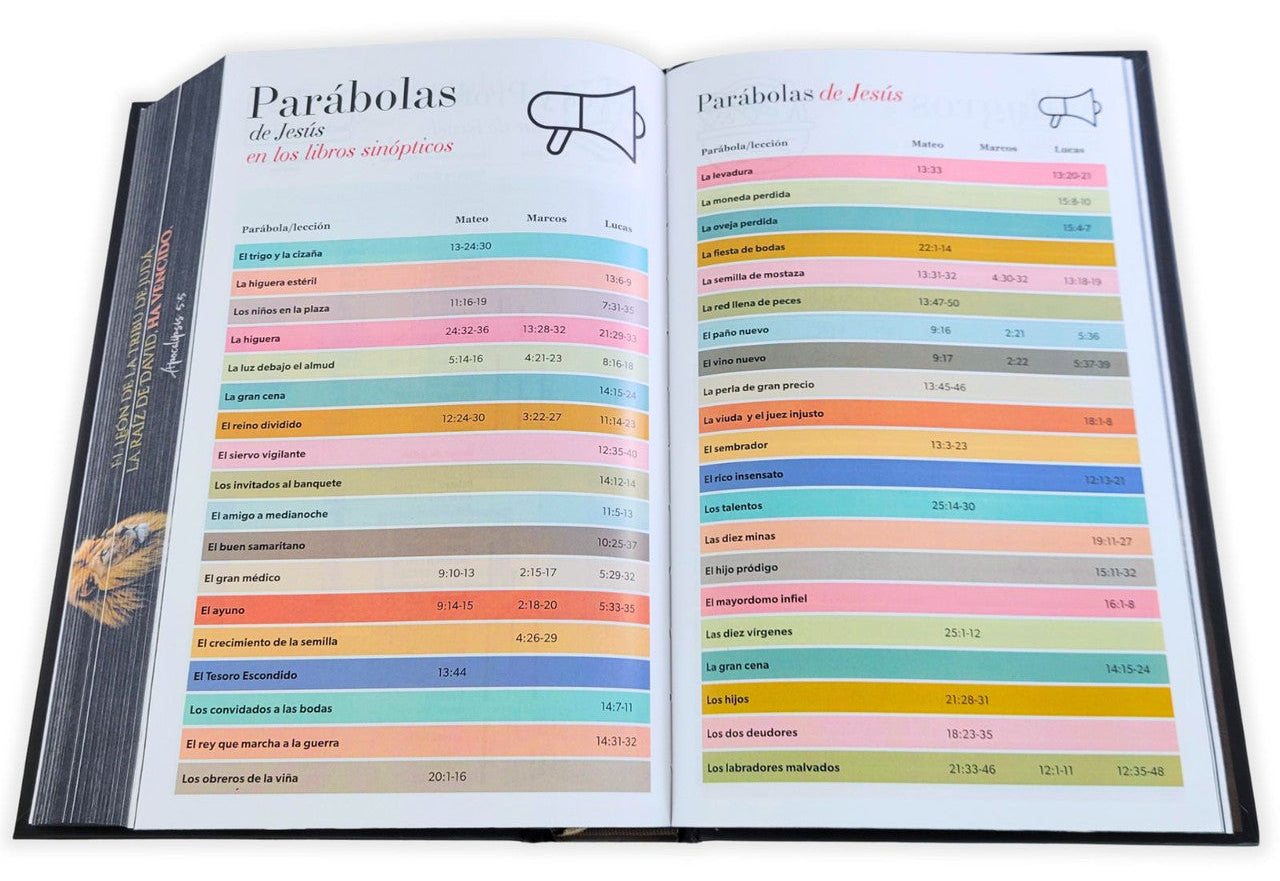 EL LEÓN DE LA TRIBU DE JUDÁ,
LA RAÍZ DE DAVID, HA VENCIDO.
Apocalipsis 5:5
Parábolas
de Jesús
en los libros sinópticos
Parábola/lección Mateo Marcos Lucas
El trigo y la cizaña 13-24:30
La higuera estéril 13:6-9
Los niños en la plaza 11:16-19 7:31-35
La higuera 24:32-36 13:28-32 21:29-33
La luz debajo el almud 5:14-16 4:21-23 8:16-18
La gran cena 14:15-24
El reino dividido 12:24-30 3:22-27 11:14-23
El siervo vigilante 12:35-40
Los invitados al banquete 14:12-14
El amigo a medianoche 11:5-13
El buen samaritano 10:25-37
El gran médico 9:10-13 2:15-17 5:29-32
El ayuno 9:14-15 2:18-20 5:33-35
El crecimiento de la semilla 4:26-29
El Tesoro Escondido 13:44
Los convidados a las bodas 14:7-11
El rey que marcha a la guerra 14:31-32
Los obreros de la viña 20:1-16
Parábolas de Jesús
Parábola/lección Mateo Marcos Lucas
La levadura 13:33 13:20-21
La moneda perdida 15:8-10
La oveja perdida 15:4-7
La fiesta de bodas 22:1-14
La semilla de mostaza 13:31-32 4:30-32 13:18-19
La red llena de peces 13:47-50
El paño nuevo 9:16 2:21 5:36
El vino nuevo 9:17 2:22 5:37-39
La perla de gran precio 13:45-46
La viuda y el juez injusto 18:1-8
El sembrador 13:3-23
El rico insensato 12:13-21
Los talentos 25:14-30
Las diez minas 19:11-27
El hijo pródigo 15:11-32
El mayordomo infiel 16:1-8
Las diez vírgenes 25:1-12
La gran cena 14:15-24
Los hijos 21:28-31
Los dos deudores 18:23-35
Los labradores malvados 21:33-46 12:1-11 12:35-48